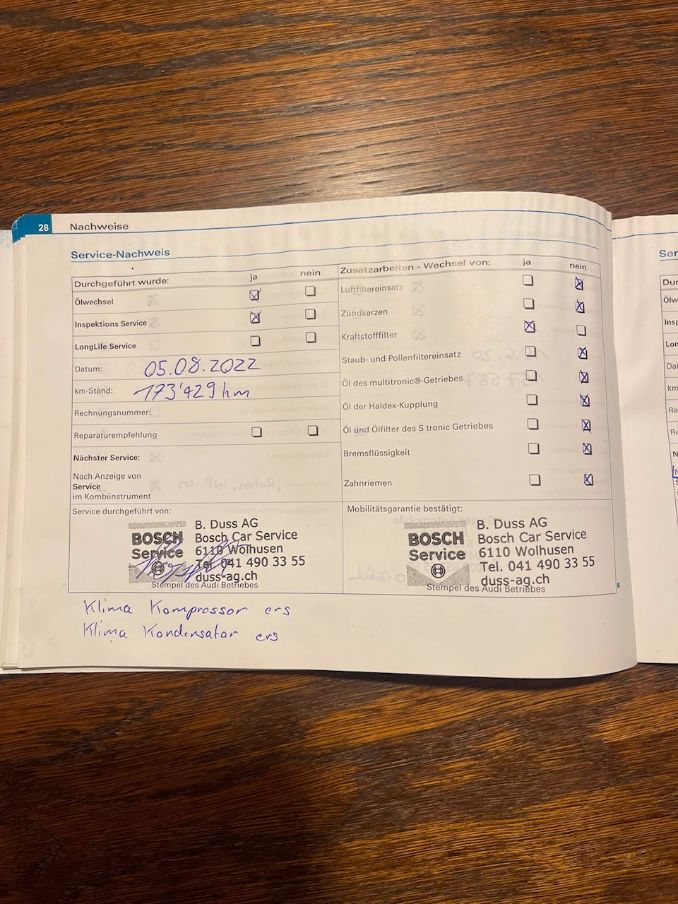 28 Nachweise
Service-Nachweis
Durchgeführt wurde: ja nein
Ölwechsel
Inspektions Service
LongLife Service
Datum: 05.08.2022
km-Stand: 173'429 km
Rechnungsnummer:
Reparaturempfehlung
Nächster Service:
Nach Anzeige von
Service
im Kombiinstrument
Service durchgeführt von:
BOSCH
Service
B. Duss AG
Bosch Car Service
6110 Wolhusen
Tel. 041 490 33 55
duss-ag.ch
Stempel des Audi Betriebes
Zusatzarbeiten - Wechsel von: ja nein
Luftfiltereinsatz
Zündkerzen
Kraftstofffilter
Staub- und Pollenfiltereinsatz
Öl des multitronic®-Getriebes
Öl der Haldex-Kupplung
Öl und Ölfilter des S tronic Getriebes
Bremsflüssigkeit
Zahnriemen
Mobilitätsgarantie bestätigt:
BOSCH
Service
B. Duss AG
Bosch Car Service
6110 Wolhusen
Tel. 041 490 33 55
duss-ag.ch
Stempel des Audi Betriebes
Klima Kompressor ers
Klima Kondensator ers